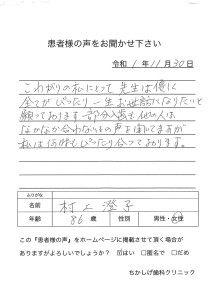 患者様の声をお聞かせ下さい
令和 1年 11月 30日
こわがりの私にとって先生は優しく
全てがぴったり一生お世話になりたいと
願っております。部分入歯も他人は
なかなか合わないとの声を聞いてますが
私は何時もぴったり合っております。
ふりがな
名前 村上 澄子
年齢 86歳 性別 男性・女性
この『患者様の声』をホームページに掲載させて頂く場合が
ありますがよろしいでしょうか? ☑はい □匿名で □だめ
ちかしげ歯科クリニック